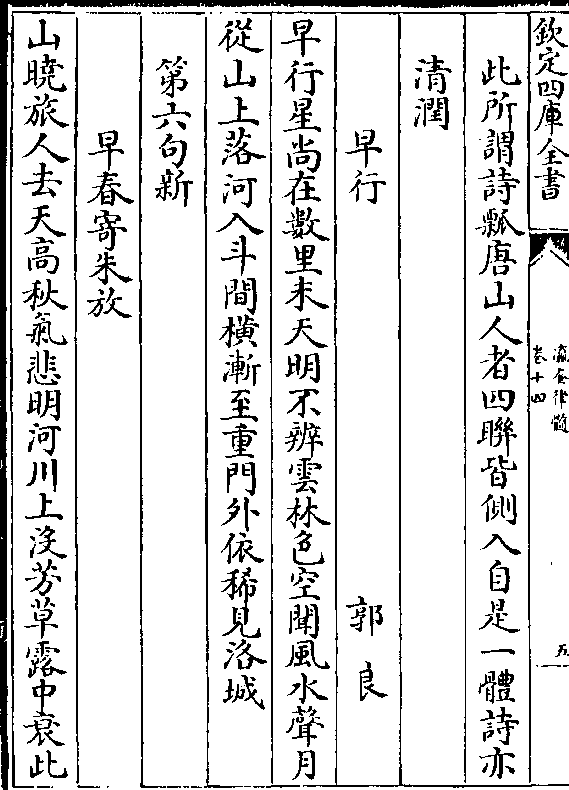 欽定四庫全書
瀛奎律髓
卷十四
五
此所謂詩瓢唐山人者四聯皆側入自是一體詩亦
清潤
早行 郭良
早行星尚在數里未天明不辨雲林色空聞風水聲月
從山上落河入斗間橫漸至重門外依稀見洛城
第六句新
早春寄朱放
山曉旅人去天高秋氣悲明河川上没芳草露中衰此